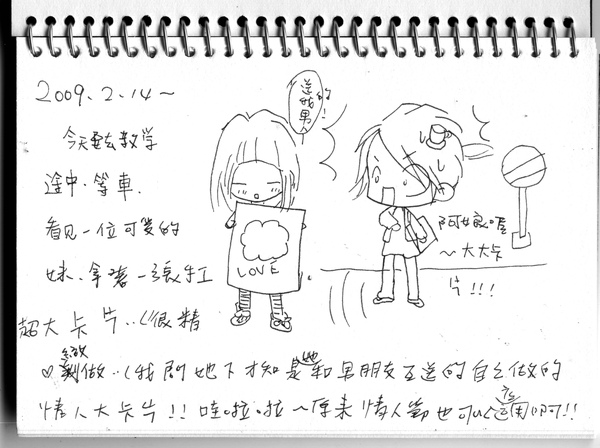 2009.2.14~
今天要去教学
途中.等車.
看见一位可爱的
妹.拿著一張手工
超大卡片..(很精
緻
♡ 做..(我問她下才知是她和男朋友互送的自己做的
情人大卡片!!哇.啦.啦~原来情人節也可以这 用啊!!
送給男的!
LOVE
阿娘喂
~大大卡
片!!!